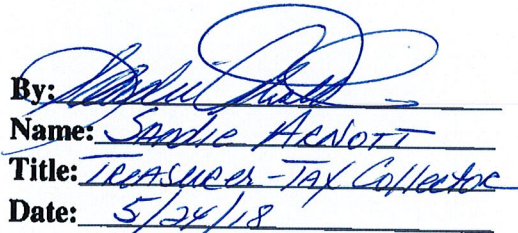 By: Sandie Arnott
Name: Sandie Arnott
Title: Treasurer-Tax Collector
Date: 5/24/18